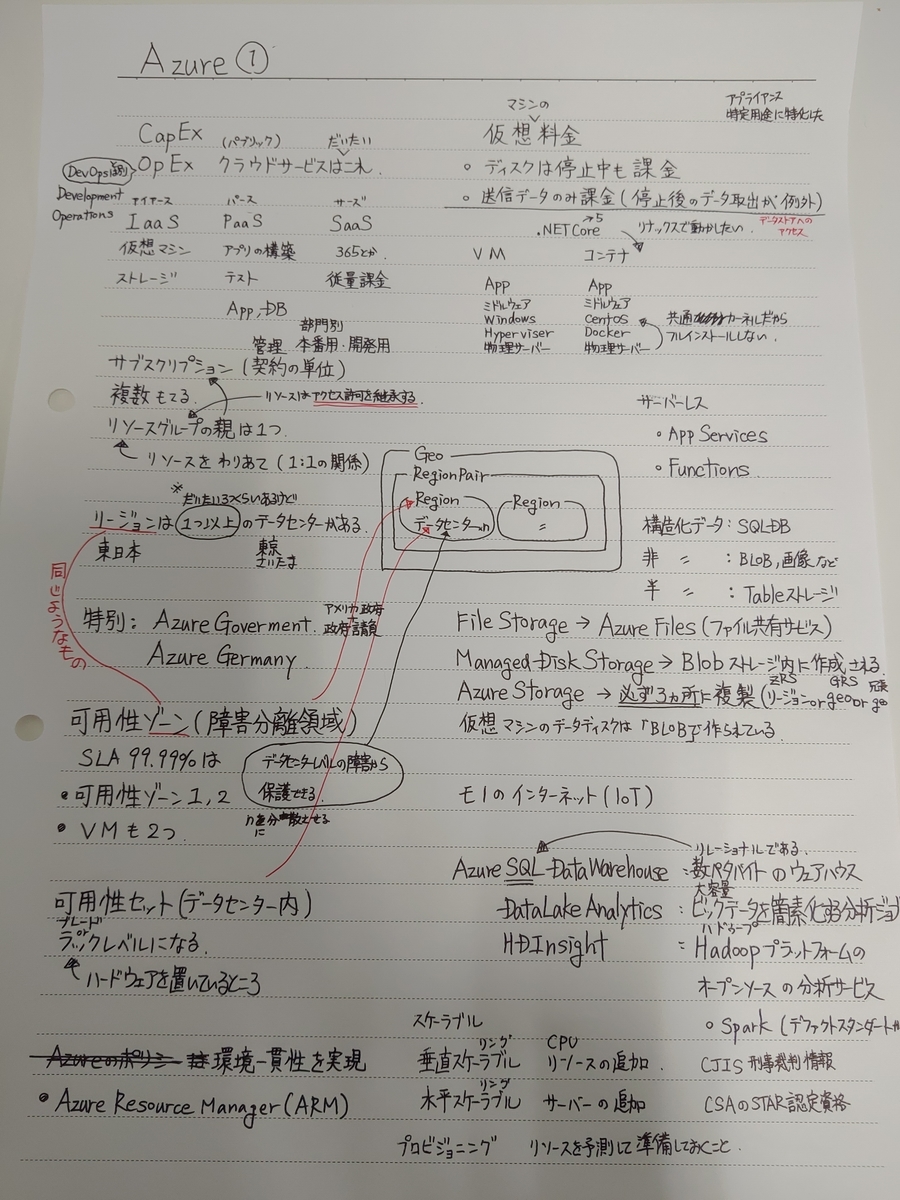 Azure ①
アプライアンス
特定用途に特化した
マシンの
CapEx (パブリック) だいたい 仮想料金
DevOps OpEx クラウドサービスはこれ 。ディスクは停止中も課金
Development
Operations
。送信データのみ課金(停止後のデータ取出が例外)
データストアへの
アクセス
アイアース パース サーズ
IaaS PaaS SaaS
仮想マシン アプリの構築 365とか
ストレージ テスト 従量課金
App, DB
→5
.NETCore リナックスで動かしたい
VM コンテナ
App App
ミドルウェア ミドルウェア
Windows CentOS
Hyperviser Docker
物理サーバー 物理サーバー
共通 カーネルだから
フルインストールしない.
部門別
管理 本番用・開発用
サブスクリプション(契約の単位)
複数もてる. リソースはアクセス許可を継承する.
リソースグループの親は1つ.
リソースをわりあて(1:1の関係)
サーバーレス
。App Services
。Functions
Geo
RegionPair
Region Region
データセンターn 〃
※
だいたい3つくらいあるけど
リージョンは1つ以上のデータセンターがある.
東日本 東京
さいたま
同じようなもの
構造化データ:SQLDB
非 〃 :BLOB,画像など
半 〃 :Tableストレージ
特別:Azure Goverment. アメリカ政府
政府請負
Azure Germany.
File Storage → Azure Files(ファイル共有サービス)
Managed Disk Storage → Blobストレージ内に作成される.
ZRS GRS
Azure Storage → 必ず3カ所に複製(リージョンorgeoor
仮想マシンのデータディスクは「BLOB」で作られている.
可用性ゾーン(障害分離領域)
SLA 99.99%は
データセンターレベルの障害から
保護できる.
・可用性ゾーン1,2
・VMも2つ.
モノのインターネット(IoT)
リレーショナルである.
Azure SQL DataWarehouse :数ペタバイトのウェアハウス
大容量
DataLake Analytics :ビックデータを簡素化する分析ジョブ
ハドゥープ
HDInsight :Hadoopプラットフォームの
オープンソースの分析サービス
。Spark(デファクトスタンダード
可用性セット(データセンター内)
ブレード
or
ラックレベルになる.
ハードウェアを置いているところ
スケーラブル
環境一貫性を実現
・Azure Resource Manager(ARM)
リング CPU
垂直スケーラブル リソースの追加.
リング
水平スケーラブル サーバーの追加
CJIS 刑事裁判情報
CSAのSTAR認定資格
プロビジョニング リソースを予測して準備しておくこと.